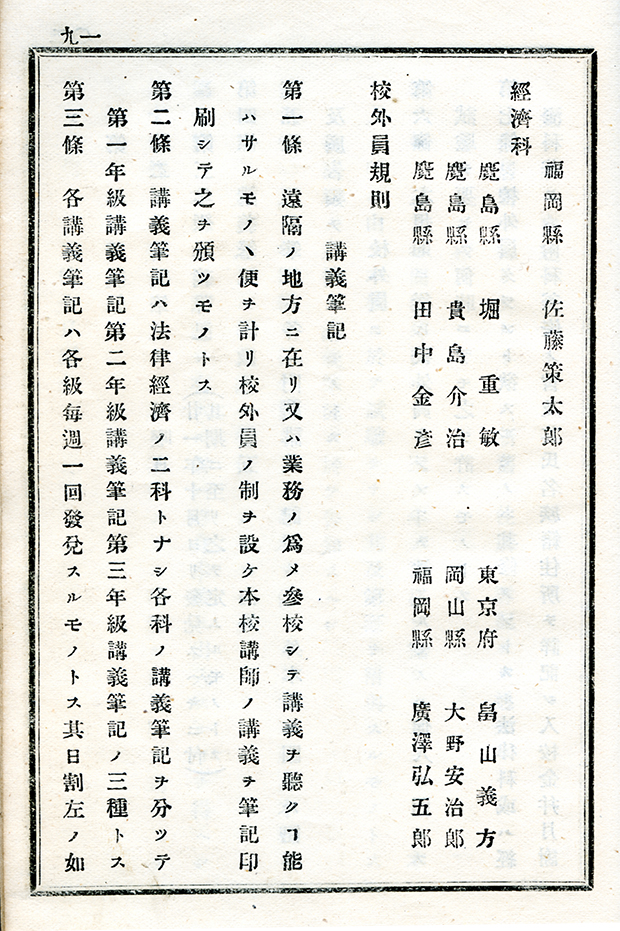 一九
福岡縣 佐藤策太郎
經濟科
麑島縣 堀重敏 東京府 畠山義方
麑島縣 貴島介治 岡山縣 大野安治郎
麑島縣 田中金彦 福岡縣 廣澤弘五郎
校外員規則
講義筆記
第一條 遠隔ノ地方ニ在リ又ハ業務ノ爲メ參校シテ講義ヲ聽クヿ能
ハサルモノヽ便ヲ計リ校外員ノ制ヲ設ケ本校講師ノ講義ヲ筆記印
刷シテ之ヲ頒ツモノトス
第二條 講義筆記ハ法律經濟ノ二科トナシ各科ノ講義筆記ヲ分ツテ
第一年級講義筆記第二年級講義筆記第三年級講義筆記ノ三種トス
第三條 各講義筆記ハ各級毎週一回發兌スルモノトス其日割左ノ如